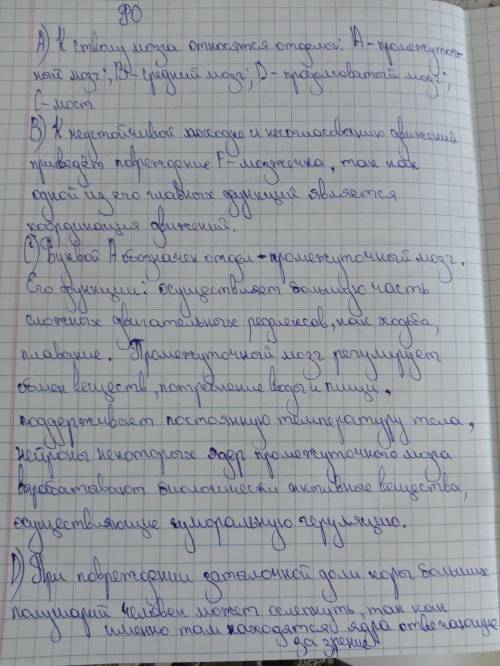 80
А) К стволу мозга относятся отделы: А-промежуточ-
ный мозг; В-средний мозг; D-продолговатый мозг;
С-мост
В) К неустойчивой походке и несогласованию движений
приведёт повреждение F-мозжечка, так как
одной из его главных функций является
координация движений.
С) Буквой А обозначен отдел-промежуточный мозг.
Его функции: осуществляет большую часть
сложных двигательных рефлексов, как ходьба,
плавание. Промежуточный мозг регулирует
обмен веществ, потребление воды и пищи,
поддерживает постоянную температуру тела,
нейроны некоторых ядер промежуточного мозга
вырабатывают биологически активные вещества,
осуществляющие гуморальную регуляцию.
D) При повреждении затылочной доли коры больших
полушарий человек может ослепнуть, так как
именно там находятся ядра отвечающие
за зрение